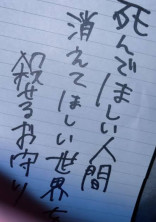 死んでほしい人間
消えてほしい世界を
殺せるお守り